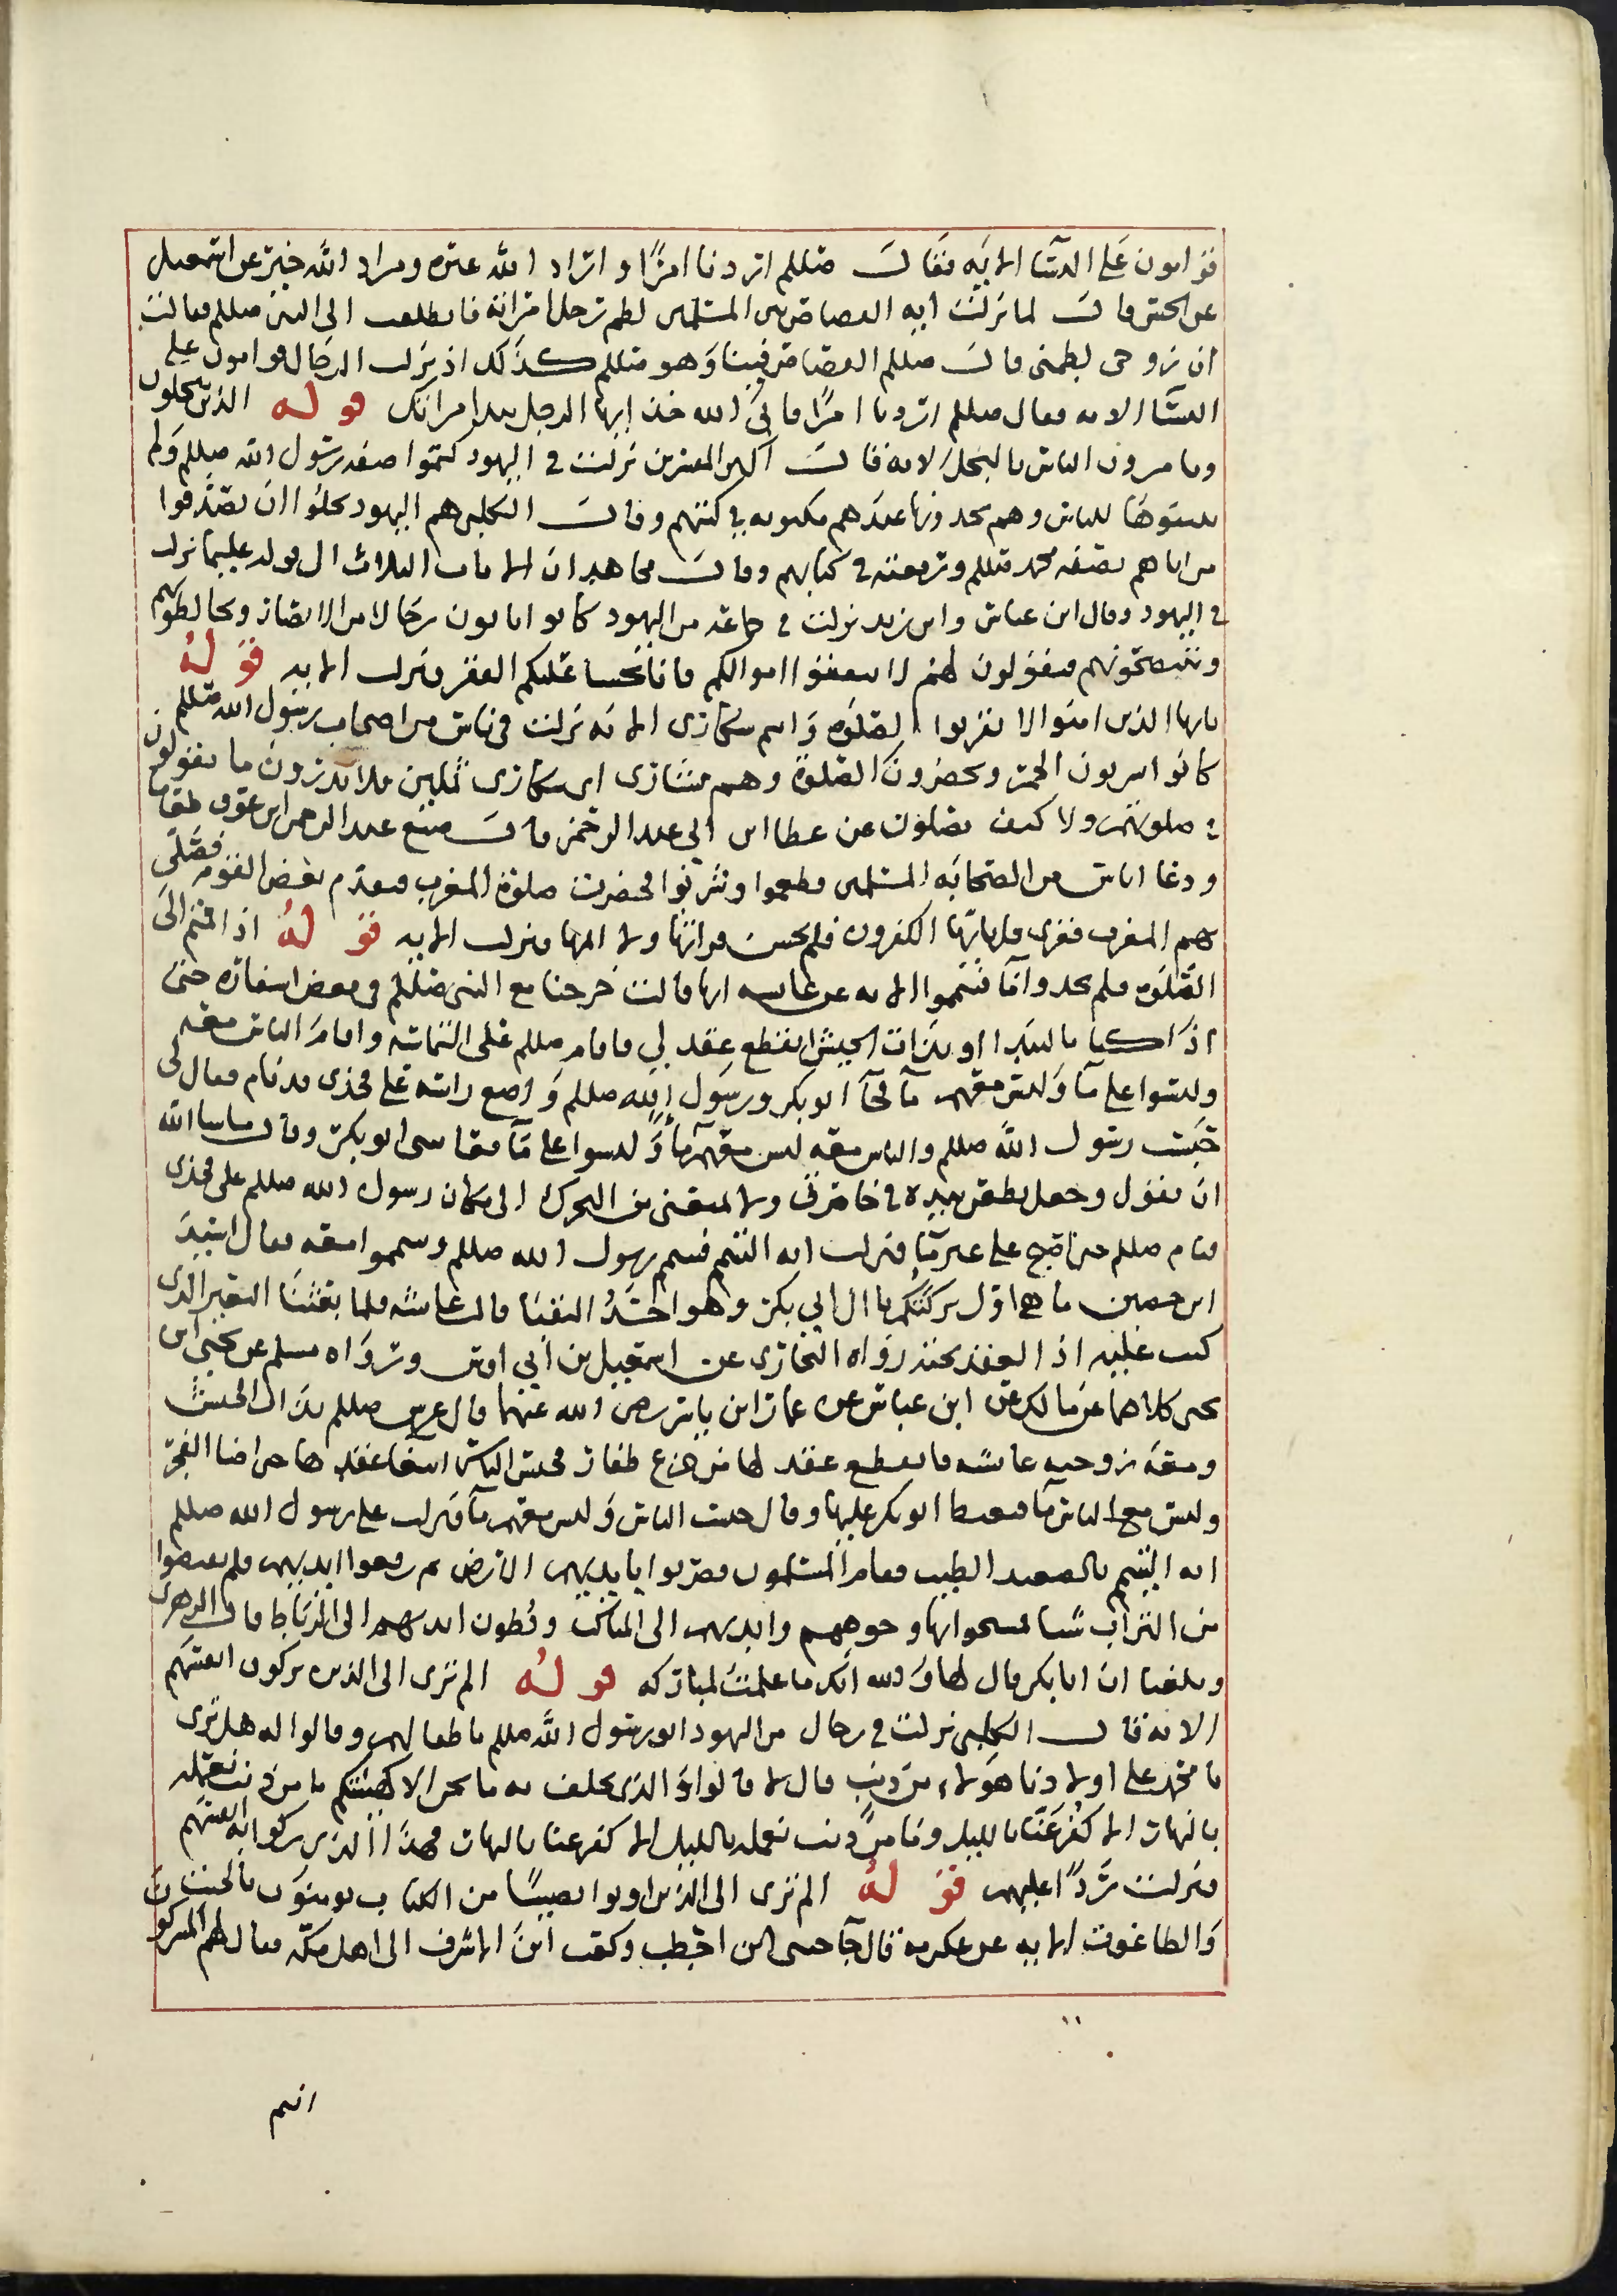 قوامون على النسا الايه فقال صللم اردنا امرًا واراد الله غيره ومراد الله خير عن اسمعيل
عن الحسن قال لما نزلت ايه القصاص بين المسلمين لطم رجل امراته فانطلقت الى النبي صللم فقالت
ان زوجي لطمني فقال صللم القصاص فبينا وهو صللم كذلك اذ نزلت الرجال قوامون على
النسا الايه فقال صللم اردنا امرًا فابى الله خذ ايها الرجل بيد امراتك قوله الذين يبخلون
ويامرون الناس بالبخل الايه قال اكثر المفسرين نزلت في اليهود كتموا صفه رسول الله صللم ولم
يبينوها للناس وهم يجدونها عندهم مكتوبه في كتبهم وقال الكلبي هم اليهود بخلوا ان يصدقوا
من اتاهم بصفه محمد صللم ونعته في كتابهم وقال مجاهد ان الايات الثلاث الى قوله عليما نزلت
في اليهود وقال ابن عباس وابن زيد نزلت في جماعه من اليهود كانوا ياتون رجالا من الانصار ويخالطونهم
وينتصحونهم فيقولون لهم لا تنفقوا اموالكم فانا نخشا عليكم الفقر فنزلت الايه قوله
يايها الذين امنوا لا تقربوا الصلوه وانتم سكارى الايه نزلت في ناس من اصحاب رسول الله صللم
كانوا يشربون الخمر ويحضرون الصلوة وهم نشاوى اي سكارى ثملين فلا يدرون ما يقولون
في صلوتهم ولا كيف يصلون عن عطا ابن ابي عبد الرحمن قال صنع عبد الرحمن ابن عوف طعاما
ودعا اناس من الصحابه المسلمين فطعموا وشربوا فحضرت صلوة المغرب فتقدم بعض القوم فصلى
بهم المغرب فقرى قل يايها الكفرون فلم يحسن قرانها ولا اتمها فنزلت الايه قوله اذا قمتم الى
الصلوه فلم تجدوا ما فتيمموا الايه عن عايشه انها قالت خرجنا مع النبي صللم في بعض اسفاره حتى
اذا كنا بالبيدا او بذات الجيش انقطع عقد لي فاقام صللم على التماسه واقام الناس معه
وليسوا على ما وليس معهم ما فجا ابو بكر ورسول الله صللم واضع راسه على فخذي قد نام فقال لي
حبست رسول الله صللم والناس معه ليس معهم ما وليسوا على ما فعاتبني ابو بكر وقال ماشا الله
ان يقول وجعل يطعن بيده في خاصرتي ولا يمنعني من التحرك الى مكان رسول الله صللم على فخذي
فنام صللم حتى اصبح على غير ما فنزلت ايه التيمم فتيمم رسول الله صللم وتيمموا معه فقال اسيد
ابن حصين ما هي اول بركتكم يا ال ابي بكر وهو احد النقبا قالت عايشه فلما بعثنا البعير الذي
كنت عليه اذا العقد تحته رواه البخاري عن اسمعيل بن ابي اويس ورواه مسلم عن يحيى ابن
يحيى كلاهما عن مالك عن ابن عباس عن عمار ابن ياسر رضي الله عنهما قال عرس صللم بذات الجيش
ومعه زوجته عايشه فانقطع عقد لها من جزع ظفار فحبس الناس ابتغا عقدها حتى اضا الفجر
وليس مع الناس ما فتغيظ ابو بكر عليها وقال حبست الناس وليس معهم ما فنزلت على رسول الله صللم
ايه التيمم بالصعيد الطيب فقام المسلمون فضربوا بايديهم الارض ثم رفعوا ايديهم فلم يقبضوا
من التراب شيا فمسحوا بها وجوههم وايديهم الى المناكب وبطون ايديهم الى الاباط قال الزهري
وبلغنا ان ابا بكر قال لها والله انك ما علمت لمباركه قوله الم ترى الى الذين يزكون انفسهم
الايه قال الكلبي نزلت في رجال من اليهود اتو رسول الله صللم باطفالهم وقالوا له هل ترى
يا محمد على اولادنا هولاء من ذنب قال لا قالوا والذي نحلف به ما نحن الا كهيئتكم ما من ذنب نعمله
بالنهار الا كفر عنا بالليل وما من ذنب نعمله بالليل الا كفر عنا بالنهار فهذا الذي زكوا به انفسهم
فنزلت ردًا عليهم قوله الم ترى الى الذين اوتوا نصيبًا من الكتاب يومنون بالجبت
والطاغوت الايه عن عكرمه قال جا حيي ابن اخطب وكعب ابن الاشرف الى اهل مكه فقال لهم المشركون
انتم